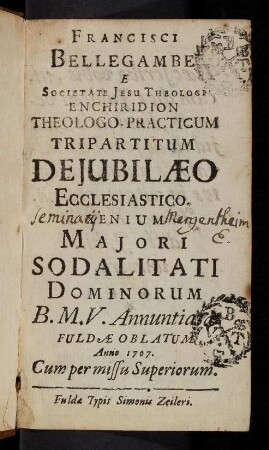 FRANCISCI
BELLEGAMBE
E
SOCIETATE JESU THEOLOGI
ENCHIRIDION
THEOLOGO-PRACTICUM
TRIPARTITUM
DE JUBILÆO
ECCLESIASTICO.
Seminarij XENIUM Mergentheim
MAJORI
SODALITATI
DOMINORUM
B. M. V. Annuntiatæ
FULDÆ OBLATUM
Anno 1707.
Cum permissu Superiorum.
Fuldæ Typis Simonis Zeileri.